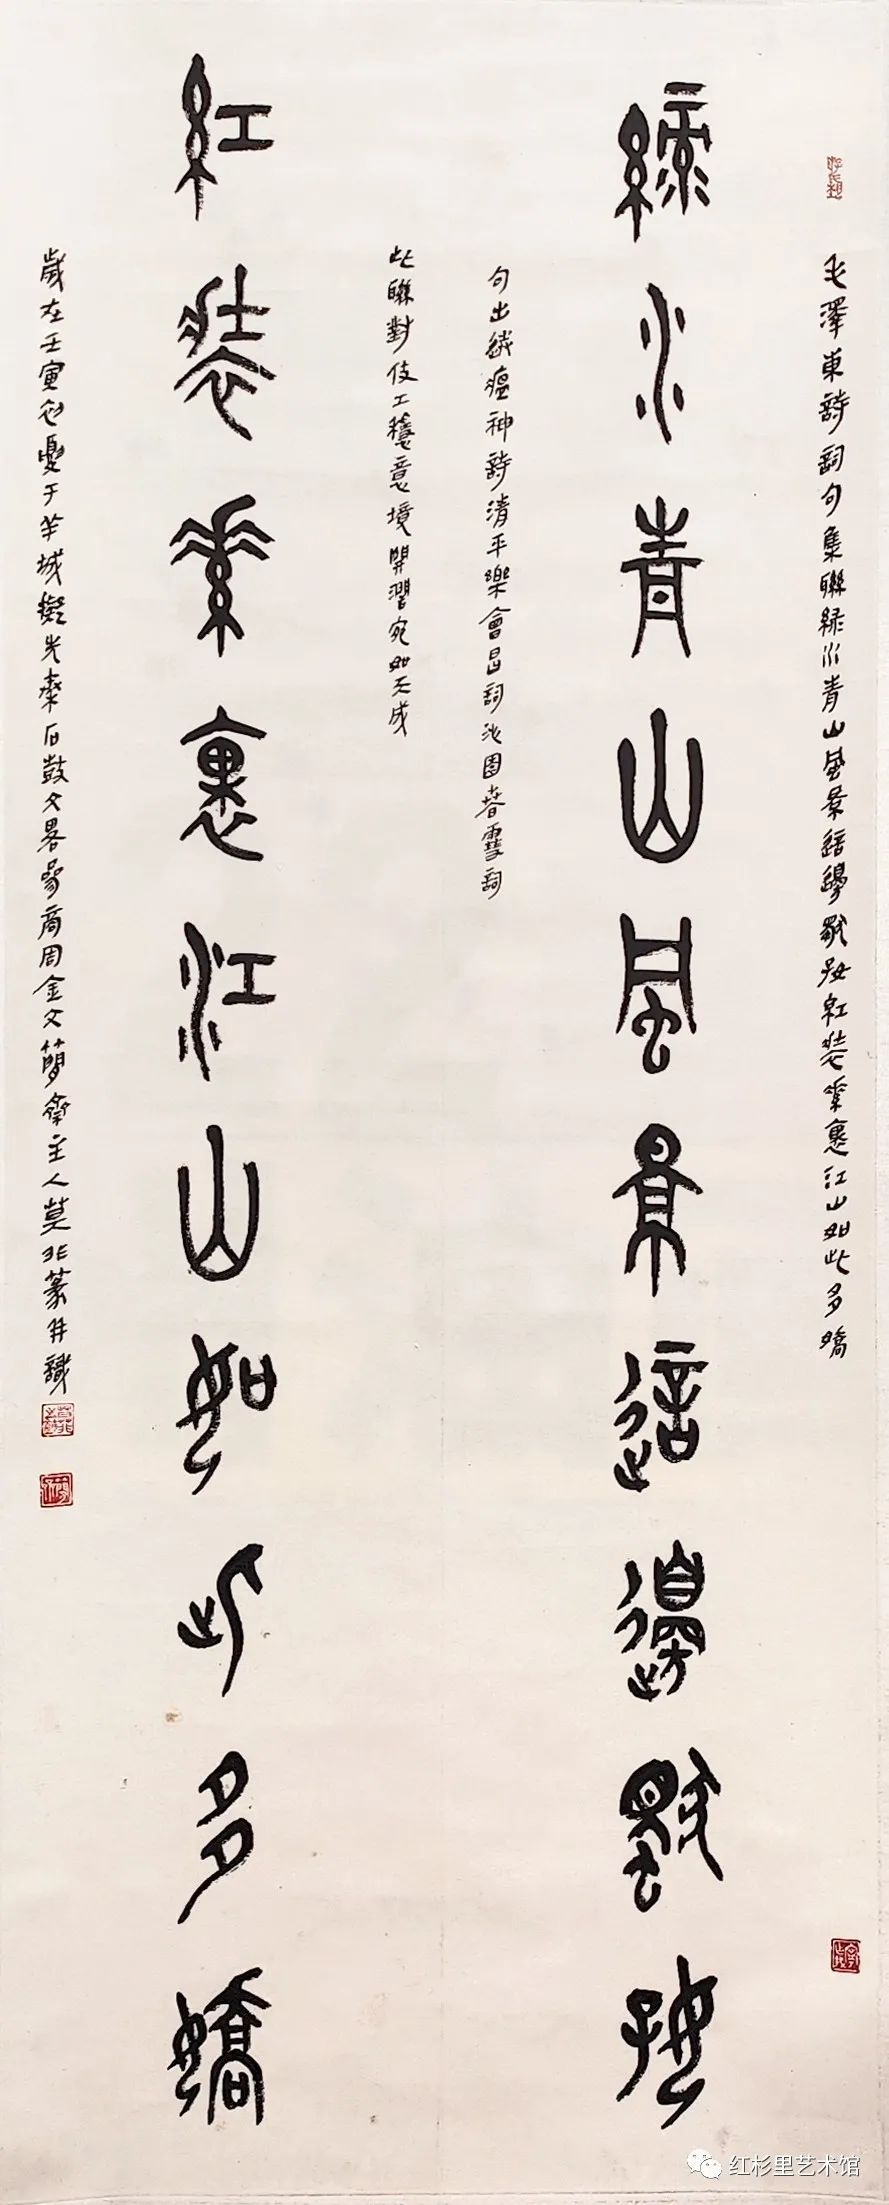 毛澤東詩詞句集聯綠水青山風景這邊獨好紅裝素裹江山如此多嬌
綠水青山風景這邊獨好
句出送瘟神詩清平樂會昌詞沁園春雪詞
此聯對仗工穩意境開闊宛如天成
紅裝素裹江山如此多嬌
歲在壬寅初夏于羊城擬先秦石鼓文畧參商周金文簡齋主人莫非篆并識
红杉里艺术馆